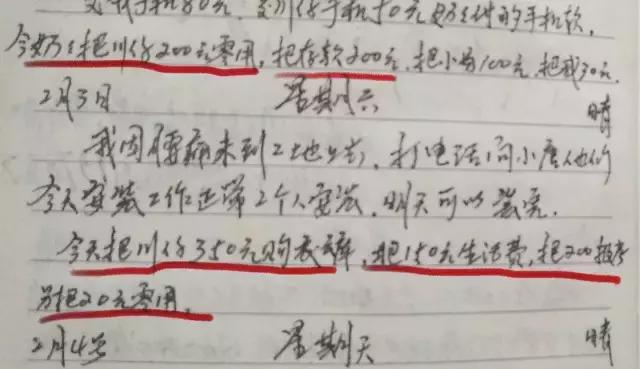 交我手机80元,交川份手机50元奶给付的手机款,
今奶给把川份200元零用,把存款200元,把小为100元,把我30元.
2月3日 星期六 晴
我因腰痛未到工地上去,打电话问小唐他们
今天安装工作还第2个人安装,明天可以装完.
今天把川份350元购衣裤,把150元生活费,把200报考
另把20元零用.
2月4号 星期天 晴